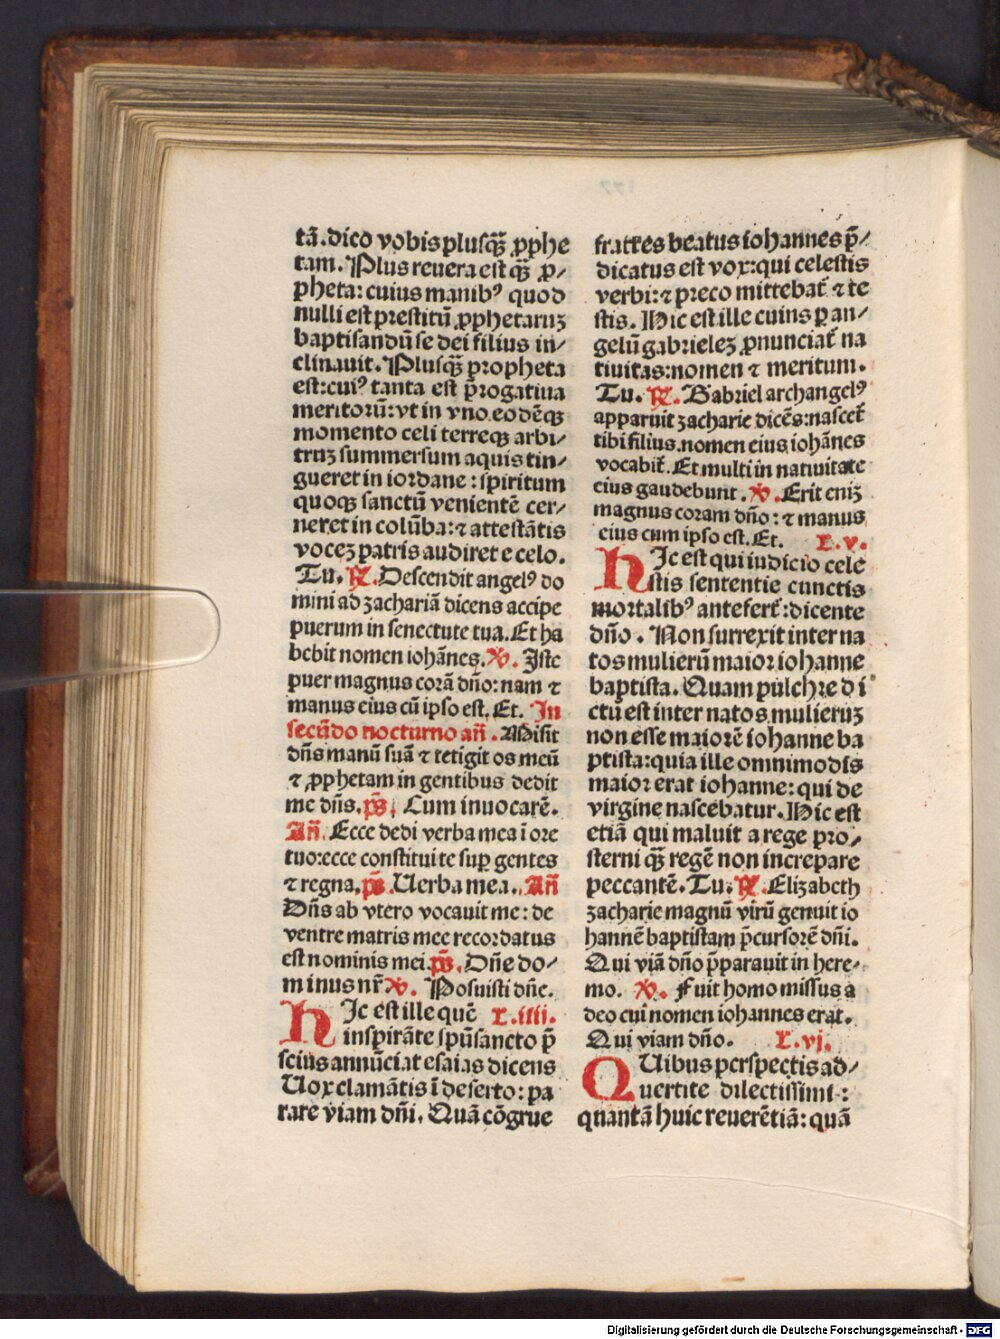 tā.dico vobis plusq̄ꝫ ꝓphe
tam. Plus reuera est q̄ꝫ ꝓ/
pheta: cuius manibꝰ quod
nulli est prestitū ꝓphetaruꝫ
baptisandū se dei filius in/
clinauit. Plusq̄ꝫ propheta
est: cuiꝰ tanta est p̄rogatiua
meritorū: vt in vno eodēqꝫ
momento celi terreqꝫ arbi/
truꝫ summersum aquis tin/
gueret in iordane: spiritum
quoqꝫ sanctū venientē cer/
neret in colūba: ⁊ attestātis
voceꝫ patris audiret e celo.
Tu. ℟. Descendit angelꝰ do
mini ad zachariā dicens accipe
puerum in senectute tua. Et ha
bebit nomen iohānes. ℣. Iste
puer magnus corā dño: nam ⁊
manus eius cū ipso est. Et. In
secūdo nocturno añ. Misit
dñs manū suā ⁊ tetigit os meū
⁊ ꝓphetam in gentibus dedit
me dñs. ps̄. Cum inuocarē.
Añ. Ecce dedi verba mea ī ore
tuo: ecce constitui te suꝑ gentes
⁊ regna. ps̄. Uerba mea. Añ
Dñs ab vtero vocauit me: de
ventre matris mee recordatus
est nominis mei. ps̄. Dñe do/
minus nr̄ ℣. Posuisti dñe.
HIc est ille quē L.iiii.
inspirāte spūsancto p̄
scius annūciat esaias dicens
Uox clamātis ī deserto: pa
rare viam dñi. Quā cōgrue
fratres beatus iohannes p̄/
dicatus est vox: qui celestis
verbi: ⁊ preco mittebat̄ ⁊ te
stis. Hic est ille cuius ꝑ an/
gelū gabrieleꝫ ꝓnunciat̄ na
tiuitas: nomen ⁊ meritum.
Tu. ℟. Gabriel archangelꝰ
apparuit zacharie dicēs: nascet̄
tibi filius. nomen eius iohānes
vocabit̄. Et multi in natiuitate
eius gaudebunt. ℣. Erit eniꝫ
magnus coram dño: ⁊ manus
eius cum ipso est. Et. L.v.
HIc est qui iudicio cele
stis sententie cunctis
mortalibꝰ antefert̄: dicente
dño. Non surrexit inter na
tos mulierū maior iohanne
baptista. Quam pulchre di
ctū est inter natos mulieruꝫ
non esse maiorē iohanne ba
ptista: quia ille omnimodis
maior erat iohanne: qui de
virgine nascebatur. Hic est
etiā qui maluit a rege pro/
sterni q̄ꝫ regē non increpare
peccantē. Tu. ℟. Elizabeth
zacharie magnū virū genuit io
hannē baptistam p̄cursorē dñi.
Qui viā dño p̄parauit in here/
mo. ℣. Fuit homo missus a
deo cui nomen iohannes erat.
Qui viam dño. L.vj.
QUibus perspectis ad/
uertite dilectissimi:
quantā huic reuerētiā: quā
Digitalisierung gefördert durch die Deutsche Forschungsgemeinschaft - DFG